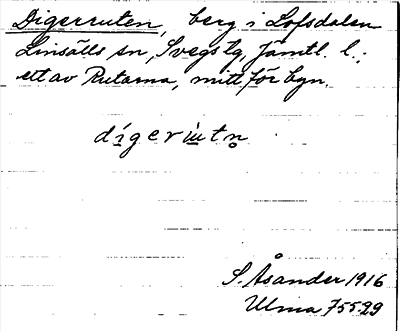 Digerruten, berg i Lofsdalen
Linsälls sn, Svegs tg, Jämtl. l.;
ett av Rutarna, mitt för byn.
dígerùtn̥
S. Åsander 1916
Ulma 755:29